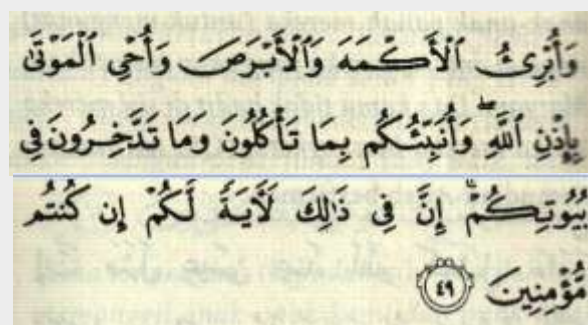 وَأُبْرِئُ ٱلْأَكْمَهَ وَٱلْأَبْرَصَ وَأُحْىِ ٱلْمَوْتَىٰ
بِإِذْنِ ٱللَّهِۖ وَأُنَبِّئُكُم بِمَا تَأْكُلُونَ وَمَا تَدَّخِرُونَ فِى
بُيُوتِكُمْۚ إِنَّ فِى ذَٰلِكَ لَءَايَةً لَّكُمْ إِن كُنتُم
مُّؤْمِنِينَ ٤٩